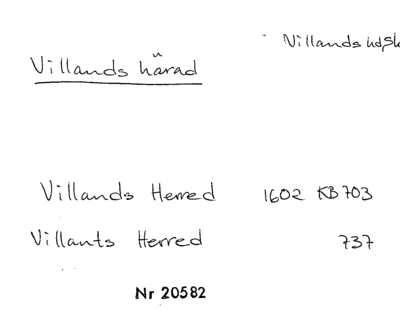 Villands hd, Sk
Villands härad
Villands Herred 1602 KB 703
Villants Herred 737
Nr 20582